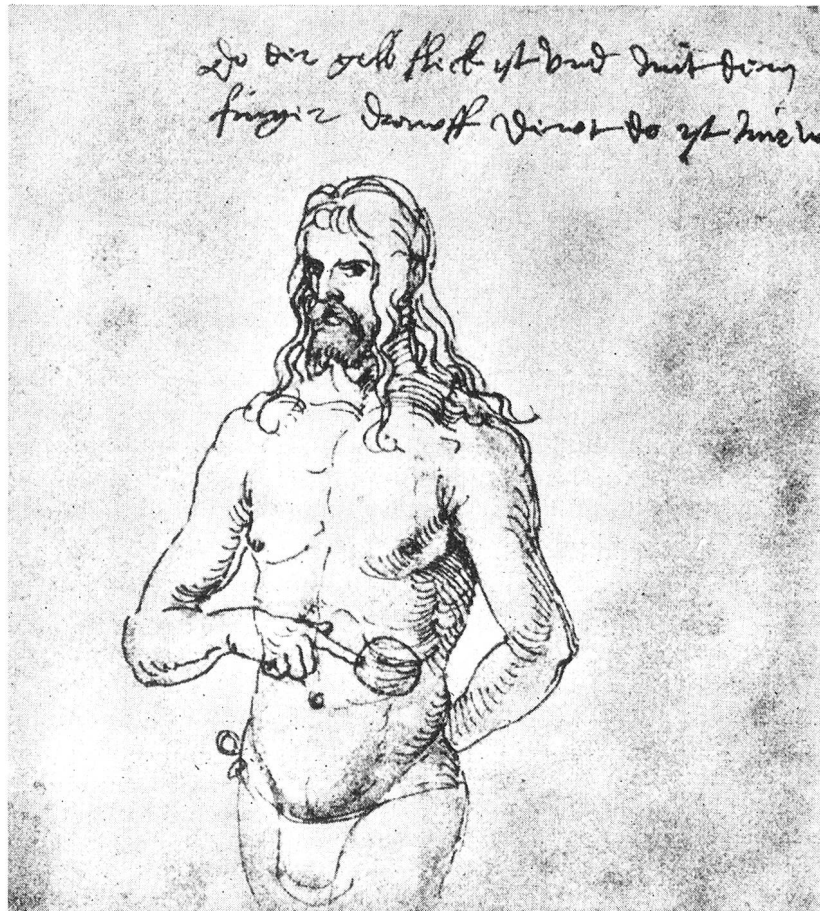 Do der gelb fleck ist vnd mit dem
finger drawff dewt do ist mir